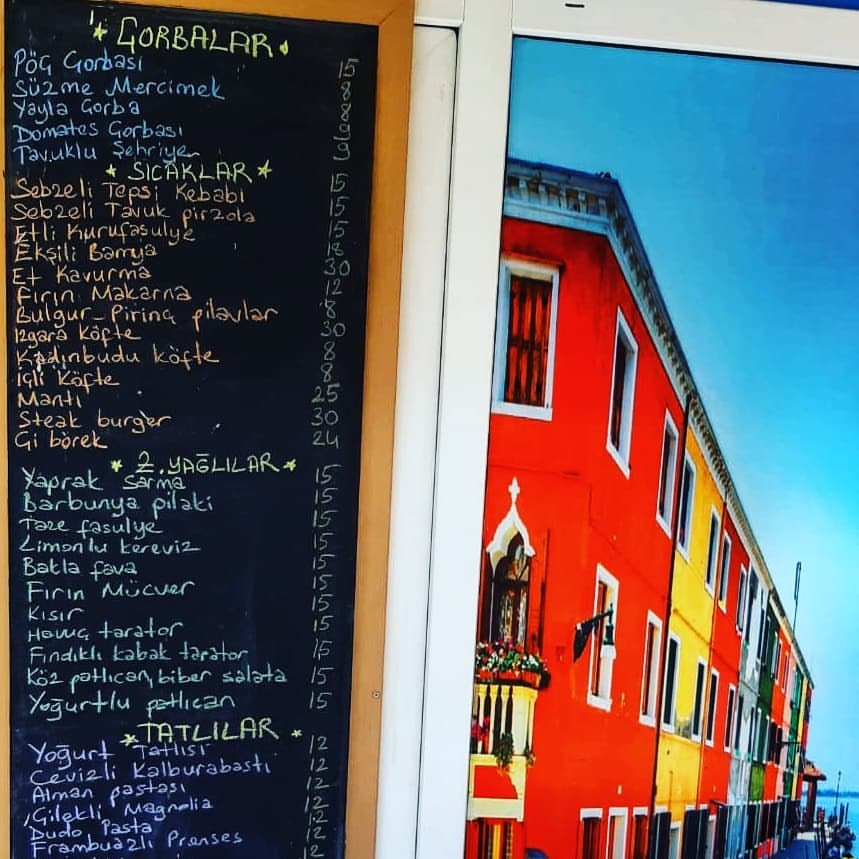 * ÇORBALAR *
Pöç Çorbası 15
Süzme Mercimek 8
Yayla Çorba 8
Domates Çorbası 9
Tavuklu Şehriye 9
* SICAKLAR *
Sebzeli Tepsi Kebabı 15
Sebzeli Tavuk pirzola 15
Etli Kurufasulye 15
Ekşili Bamya 18
Et Kavurma 30
Fırın Makarna 12
Bulgur-Pirinç pilavlar 8
Izgara Köfte 30
Kadınbudu köfte 8
İçli Köfte 8
Mantı 25
Steak burger 30
Çi börek 24
* Z.YAĞLILAR *
Yaprak sarma 15
Barbunya pilaki 15
Taze fasulye 15
Limonlu kereviz 15
Bakla fava 15
Fırın Mücver 15
Kısır 15
Havuç tarator 15
Fındıklı kabak tarator 15
Köz patlıcan, biber salata 15
Yoğurtlu patlıcan 15
* TATLILAR *
Yoğurt Tatlısı 12
Cevizli Kalburabastı 12
Alman pastası 12
Çilekli Magnolia 12
Dudo Pasta 12
Frambuazlı Prenses 12
12